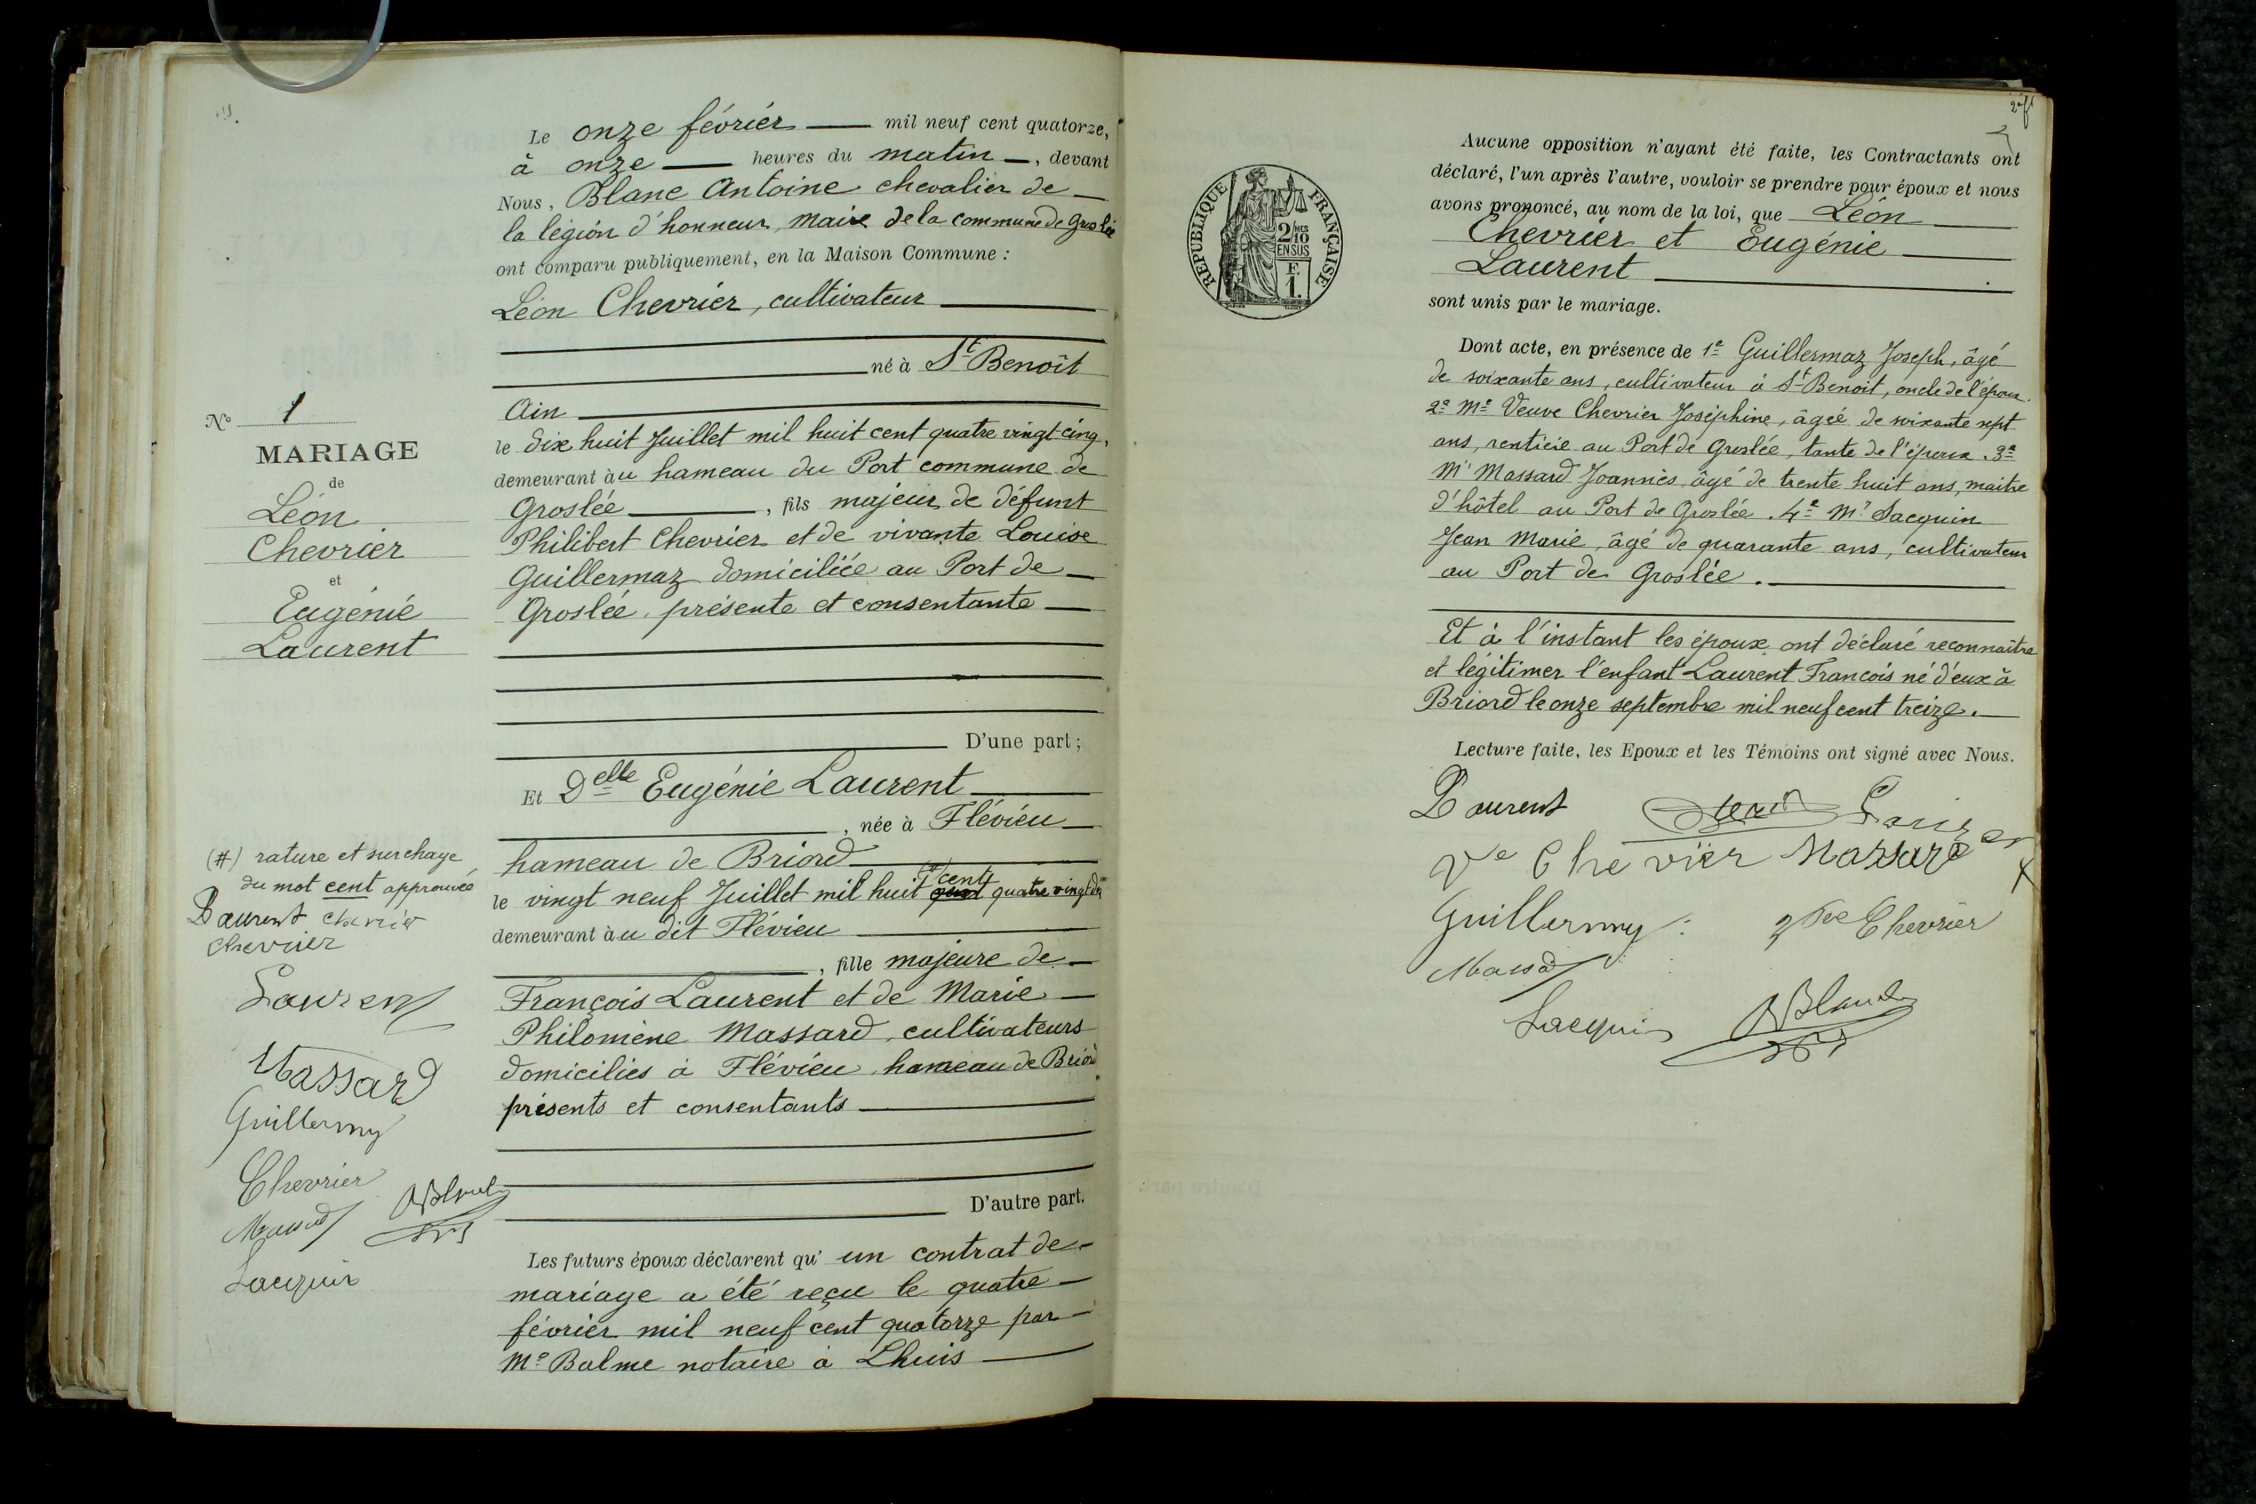 N° 1
MARIAGE
de
Léon
Chevrier
et
Eugénie
Laurent
(#) rature et surchage
du mot cent approuvée
Laurent Chevrier
Chevrier
Laurent
Massard
Guillermoz
Chevrier
Massard ABlanc
Jacquin
Le onze février mil neuf cent quatorze,
à onze heures du matin, devant
Nous, Blanc Antoine chevalier de
la légion d'honneur, Maire de la commune de Groslée
ont comparu publiquement, en la Maison Commune :
Léon Chevrier, cultivateur
né à St Benoît
Ain
le dix huit Juillet mil huit cent quatre vingt cinq,
demeurant àu hameau du Port commune de
Groslée, fils majeur de défunt
Philibert Chevrier et de vivante Louise
Guillermaz domiciliée au Port de
Groslée, présente et consentante
D'une part ;
Et Delle Eugénie Laurent
, née à Flévieu
hameau de Briord
(#) cent
le vingt neuf Juillet mil huit quatre vingt dix
demeurant àu dit Flévieu
, fille majeure de
François Laurent et de Marie
Philomène Massard, cultivateurs
domiciliés à Flévieu, hameau de Briord
présents et consentants
D'autre part.
Les futurs époux déclarent qu' un contrat de
mariage a été reçu le quatre
février mil neuf cent quatorze par
Me Balme notaire à Lhuis
27
RÉPUBLIQUE FRANÇAISE
2/10 EN SUS
F.
1.
Aucune opposition n'ayant été faite, les Contractants ont
déclaré, l'un après l'autre, vouloir se prendre pour époux et nous
avons prononcé, au nom de la loi, que Léon
Chevrier et Eugénie
Laurent
sont unis par le mariage.
Dont acte, en présence de 1e Guillermaz Joseph, âgé
de soixante ans, cultivateur à St Benoit, oncle de l'époux.
2e Me Veuve Chevrier Joséphine, âgée de soixante sept
ans, rentière au Port de Groslée, tante de l'époux. 3e
Mr Massard Joannès âgé de trente huit ans, maitre
d'hôtel au Port de Groslée. 4e Mr Jacquin
Jean Marie, âgé de quarante ans, cultivateur
au Port de Groslée.
Et à l'instant les époux ont déclaré reconnaître
et légitimer l'enfant Laurent François né d'eux à
Briord le onze septembre mil neuf cent treize.
Lecture faite, les Epoux et les Témoins ont signé avec Nous.
Laurent Laurent
Ve Chevrier Massard
Guillermoz Vve Chevrier
Massard
Jacquin ABlanc